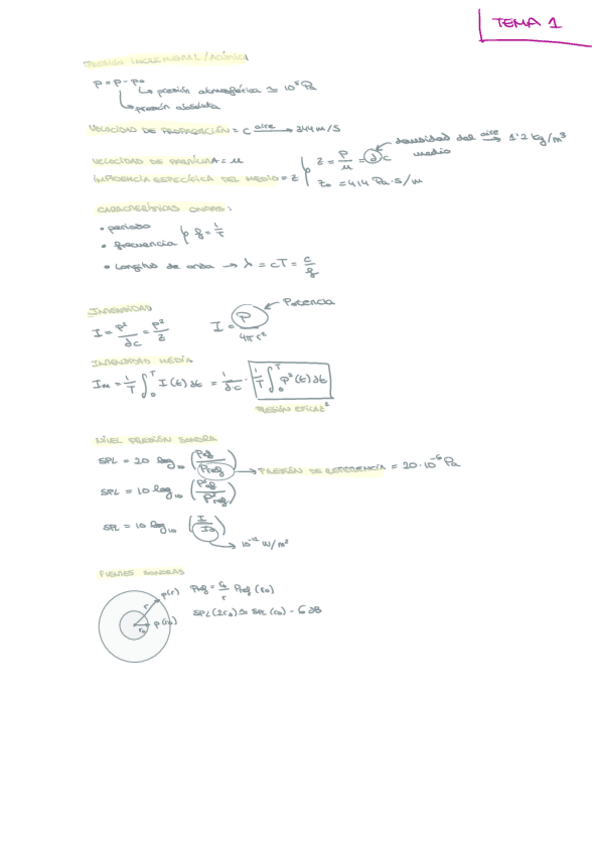 TEMA 1
PRESIÓN INCREMENTAL/ACÚSTICA
p = p - p₀
↳ presión atmosférica ≃ 10⁵ Pa
↳ presión absoluta
VELOCIDAD DE PROPAGACIÓN = c aire → 344 m/s
densidad del medio aire → 1'2 kg/m³
VELOCIDAD DE PARTÍCULA = u
z = p/u = d c
IMPEDENCIA ESPECÍFICA DEL MEDIO = z
z₀ = 414 Pa·s/m
CARACTERÍSTICAS ONDAS:
• periodo
• frecuencia
f = 1/T
• longitud de onda → λ = cT = c/f
INTENSIDAD
Potencia
I = p²/dc = p²/z
I = P/4πr²
INTENSIDAD MEDIA
Im = 1/T ∫₀ᵀ I(t)dt = 1/dc · 1/T ∫₀ᵀ p²(t)dt
PRESIÓN EFICAZ²
NIVEL PRESIÓN SONORA
SPL = 20 log₁₀ (Pef/Pref) → PRESIÓN DE REFERENCIA = 20·10⁻⁶ Pa
SPL = 10 log₁₀ (P²ef/P²ref)
SPL = 10 log₁₀ (I/I₀)
→ 10⁻¹² W/m²
FUENTES SONORAS
p(r)
Pef = r₀/r Pef (r₀)
r
p(r₀)
r₀
SPL(2r₀) ≃ SPL(r₀) - 6 dB